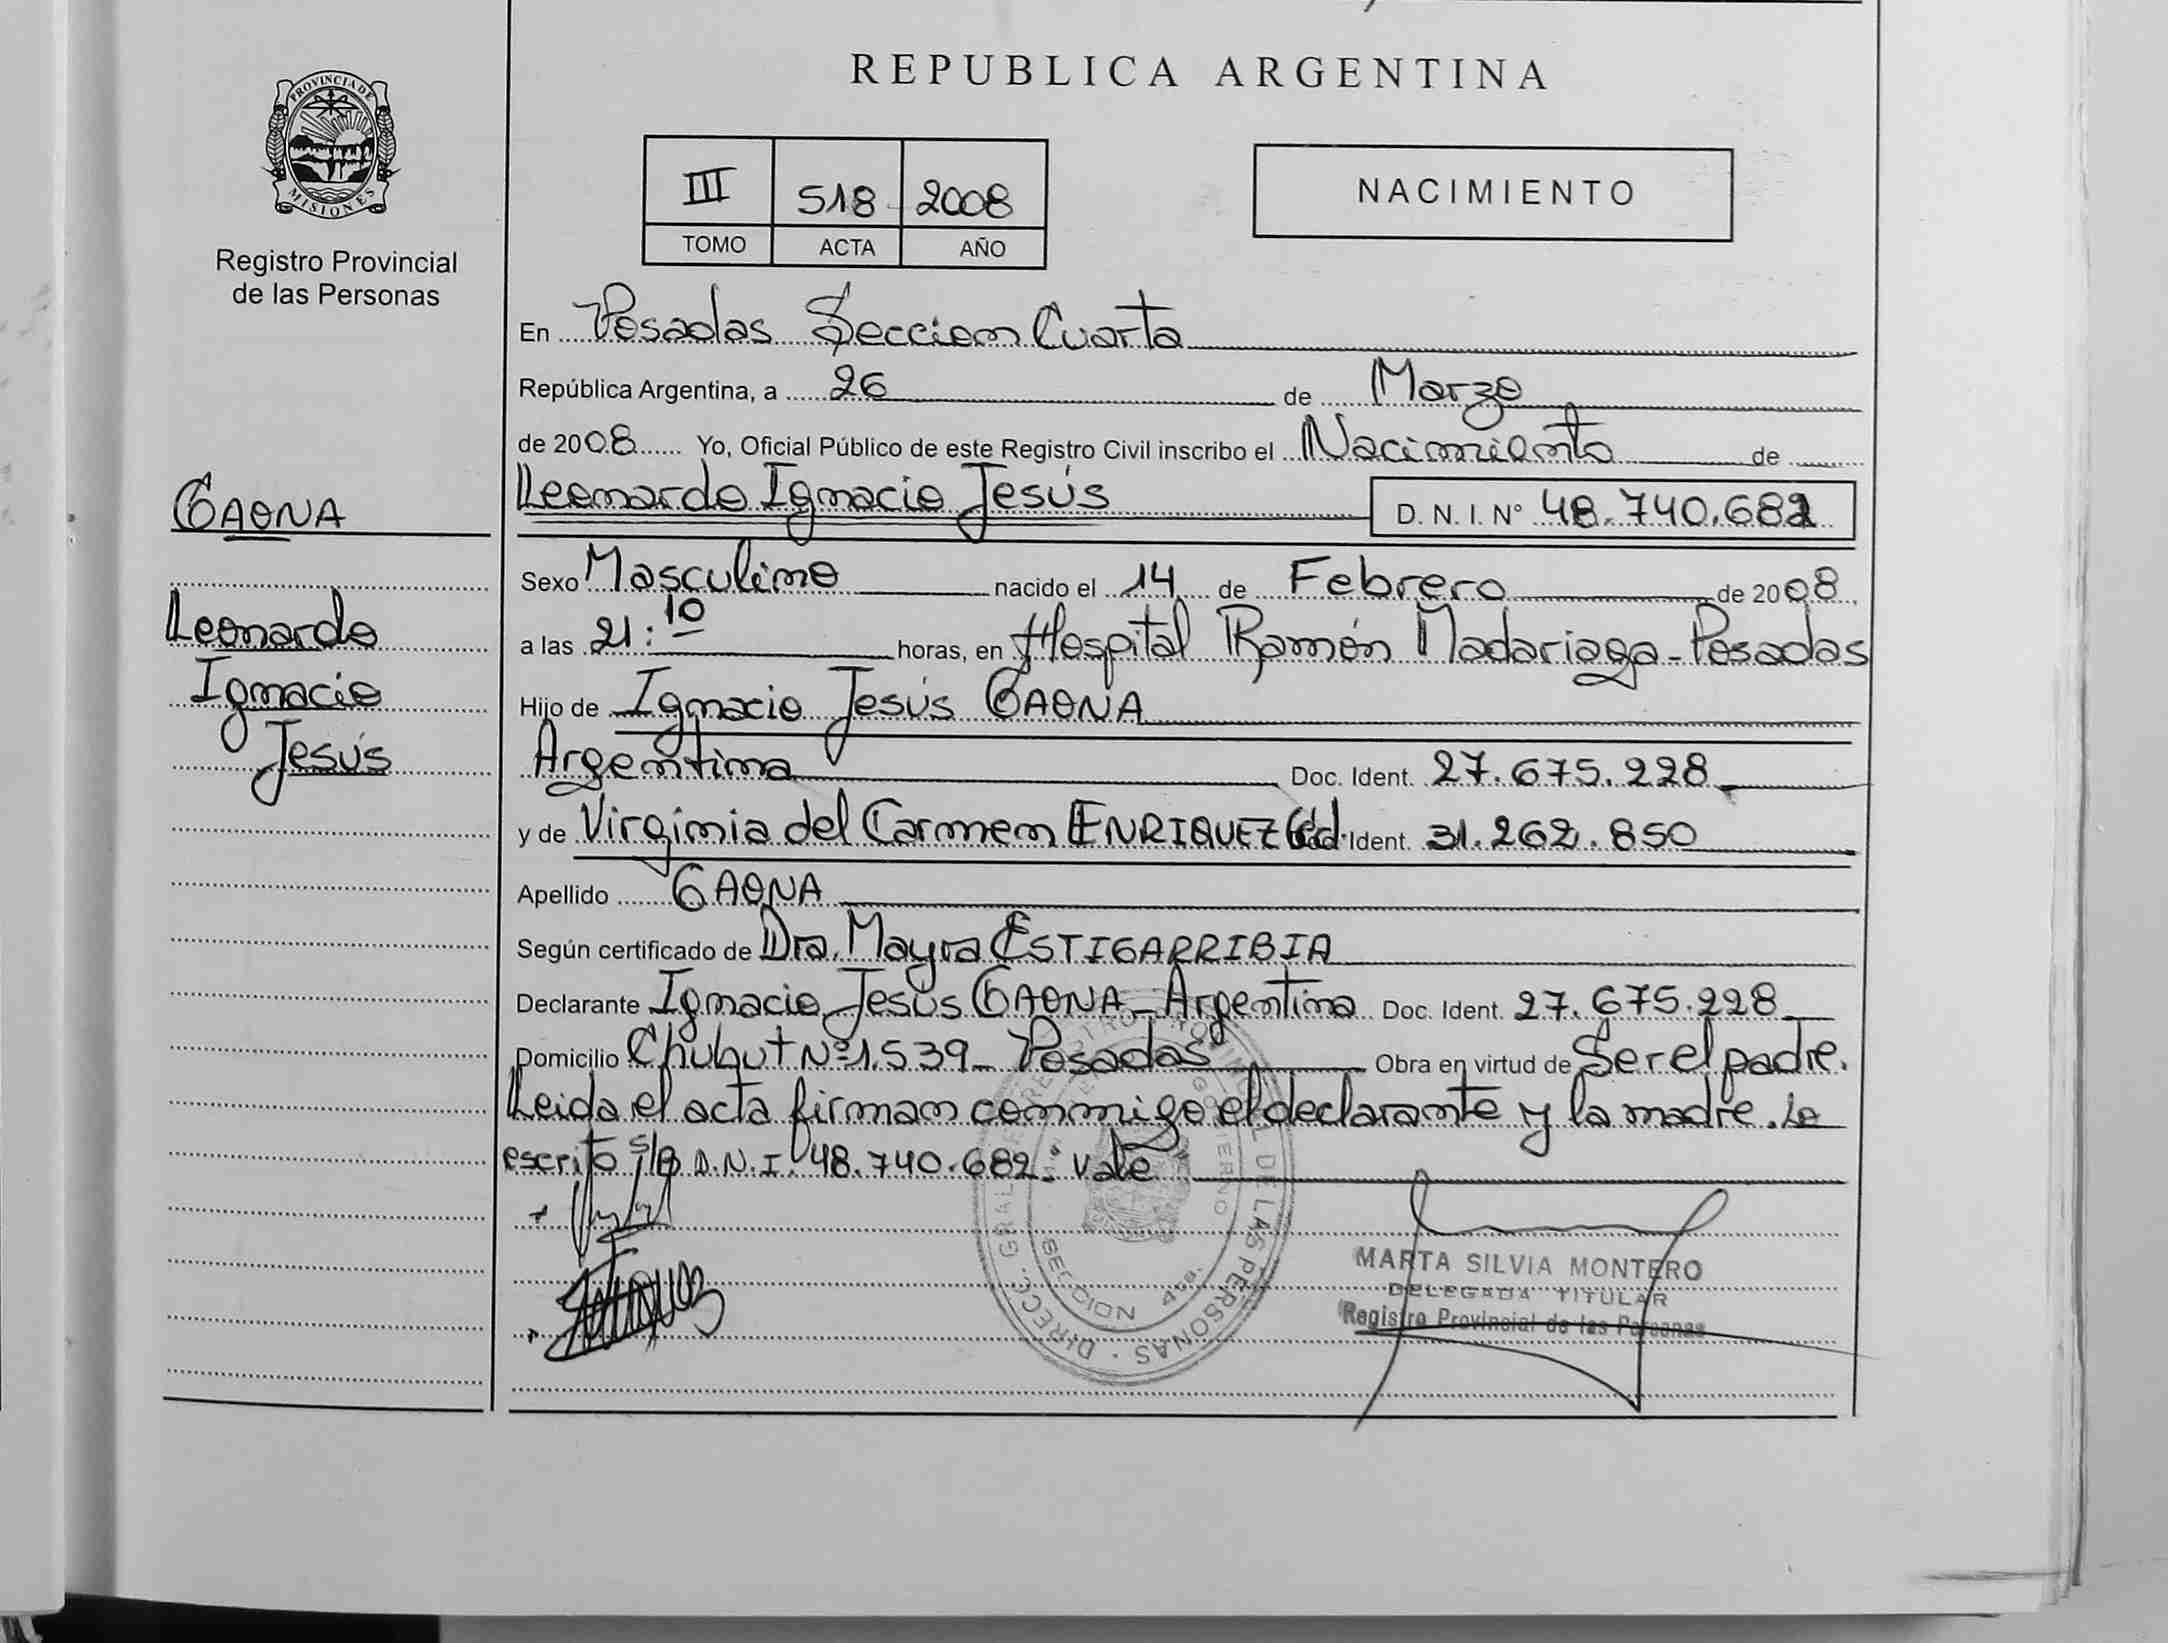 PROVINCIA DE
MISIONES
Registro Provincial
de las Personas
GAONA
Leonardo
Ignacio
Jesús
REPUBLICA ARGENTINA
III 518 2008
TOMO ACTA AÑO
NACIMIENTO
En Posadas Sección Cuarta
República Argentina, a 26 de Marzo
de 2008 Yo, Oficial Público de este Registro Civil inscribo el Nacimiento de
Leonardo Ignacio Jesús D. N. I. N° 48.740.682
Sexo Masculino nacido el 14 de Febrero de 2008
a las 21:10 horas, en Hospital Ramón Madariaga - Posadas
Hijo de Ignacio Jesús GAONA
Argentina Doc. Ident. 27.675.228
y de Virginia del Carmen ENRIQUEZ Ident. 31.262.850
Apellido GAONA
Según certificado de Dra. Mayra ESTIGARRIBIA
Declarante Ignacio Jesús GAONA - Argentina Doc. Ident. 27.675.228
Domicilio Chubut Nº 1.539 - Posadas Obra en virtud de Ser el padre.
Leida el acta firman conmigo el declarante y la madre. Lo
escrito s/b D.N.I. "48.740.682" Vale
MARTA SILVIA MONTERO
DELEGADA TITULAR
Registro Provincial de las Personas
DIRECC. GRAL. DE REGISTRO PROVINCIAL DE LAS PERSONAS
SECCION 4ta.